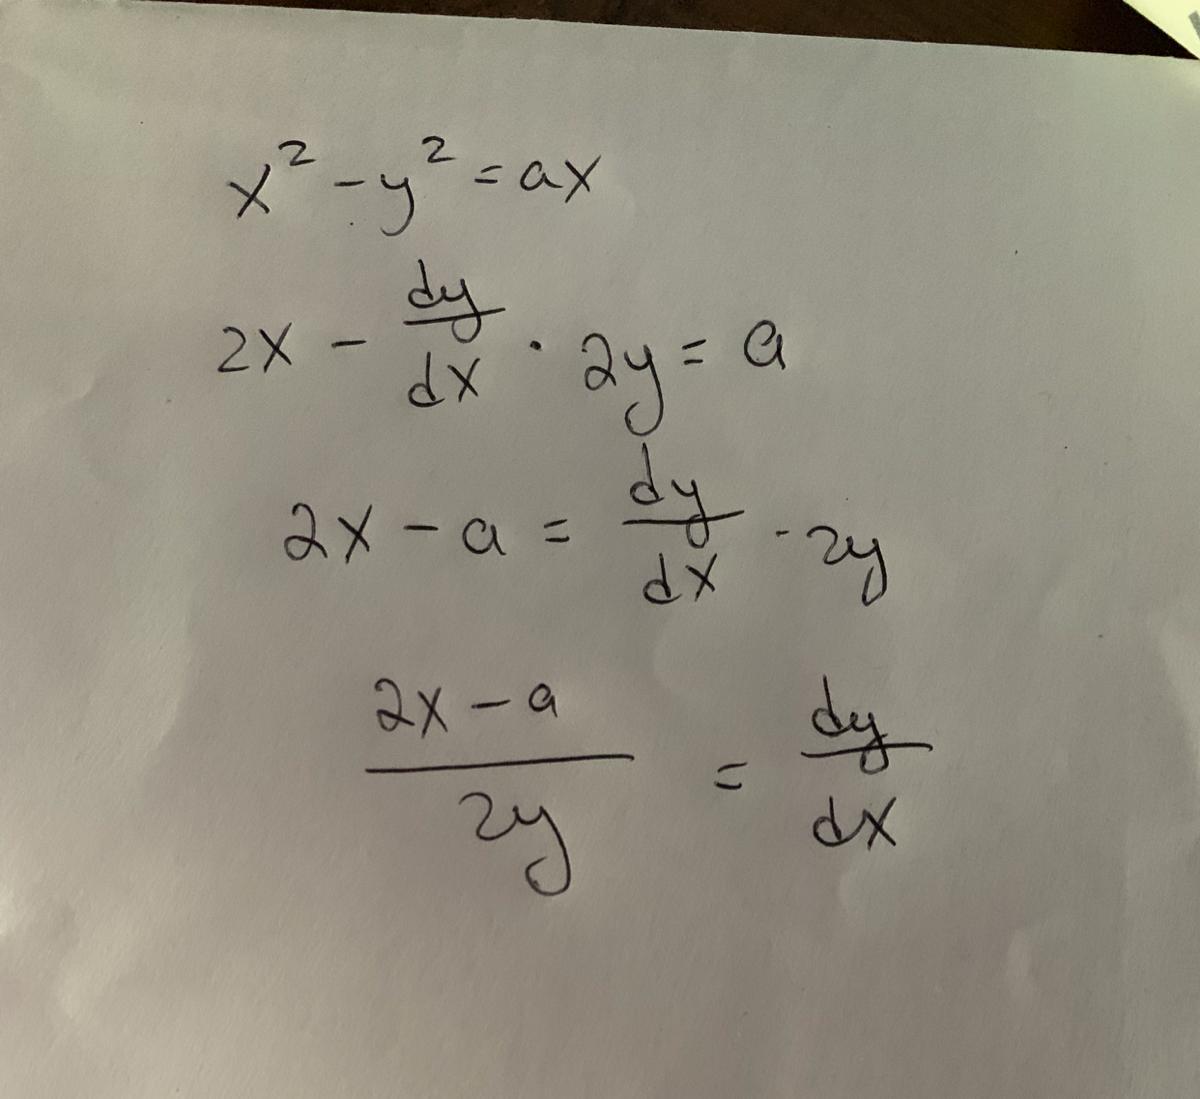 x² - y² = ax
2x - dy/dx · 2y = a
2x - a = dy/dx · 2y
(2x - a)/2y = dy/dx